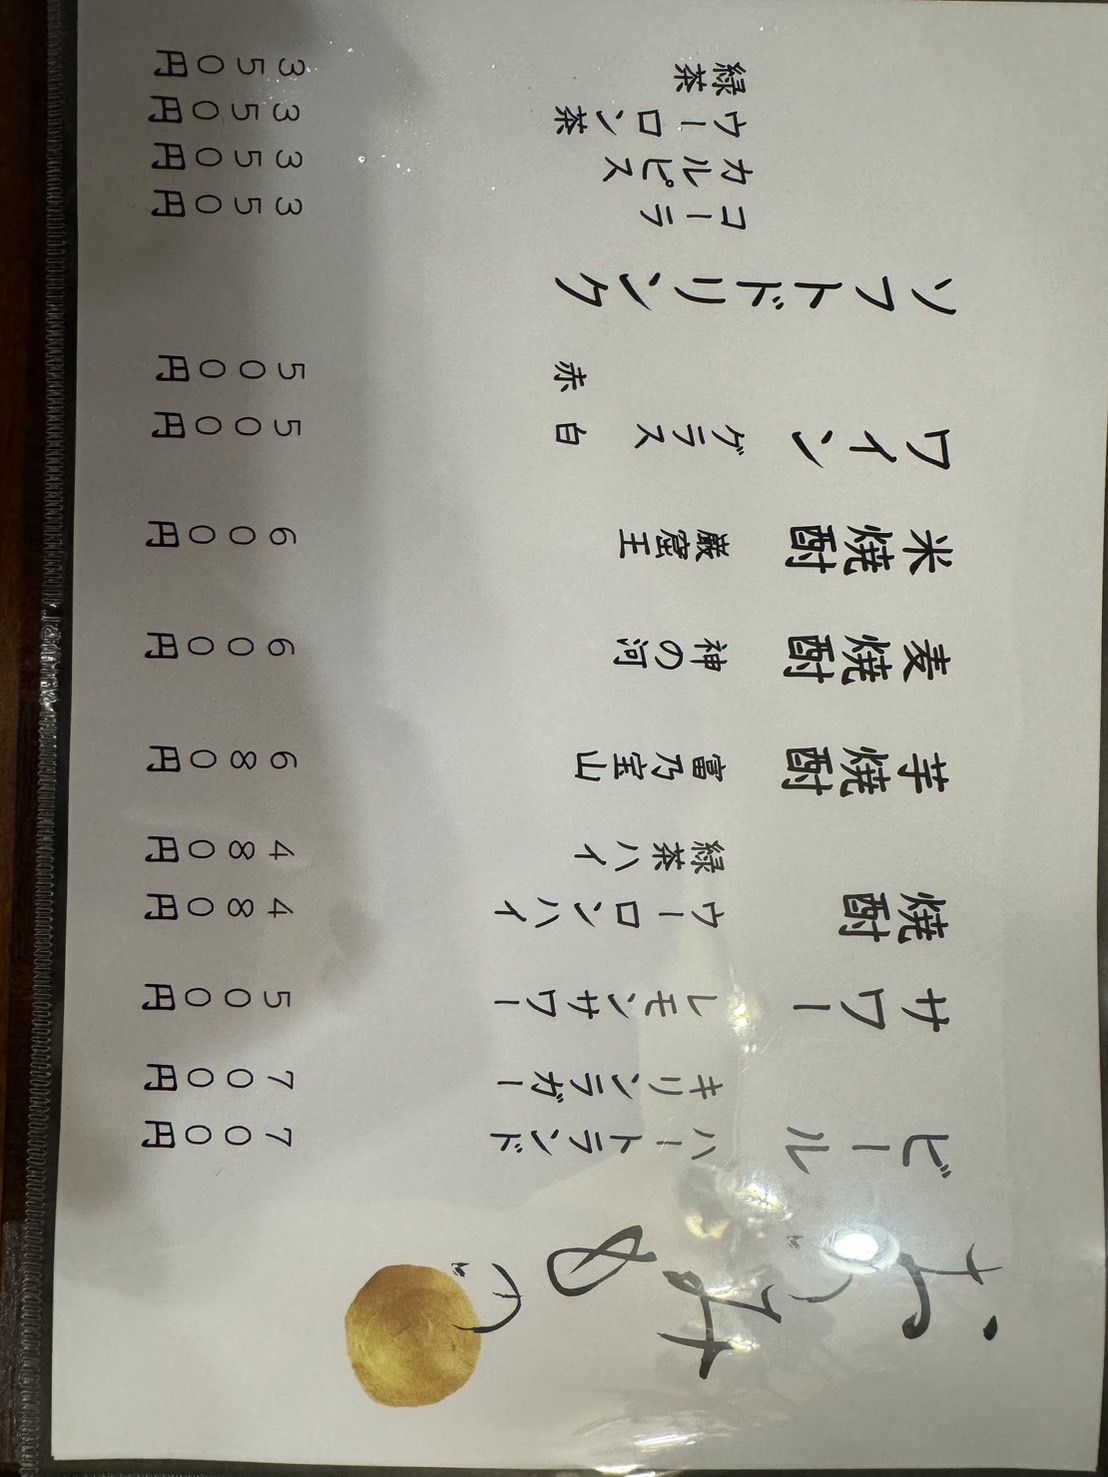 おのみもの
ビール　ハートランド　７００円
キリンラガー　７００円
サワー　レモンサワー　５００円
焼酎　ウーロンハイ　４８０円
緑茶ハイ　４８０円
芋焼酎　富乃宝山　６８０円
麦焼酎　神の河　６００円
米焼酎　巌窟王　６００円
ワイン　グラス　白　５００円
赤　５００円
ソフトドリンク
コーラ　３５０円
カルピス　３５０円
ウーロン茶　３５０円
緑茶　３５０円